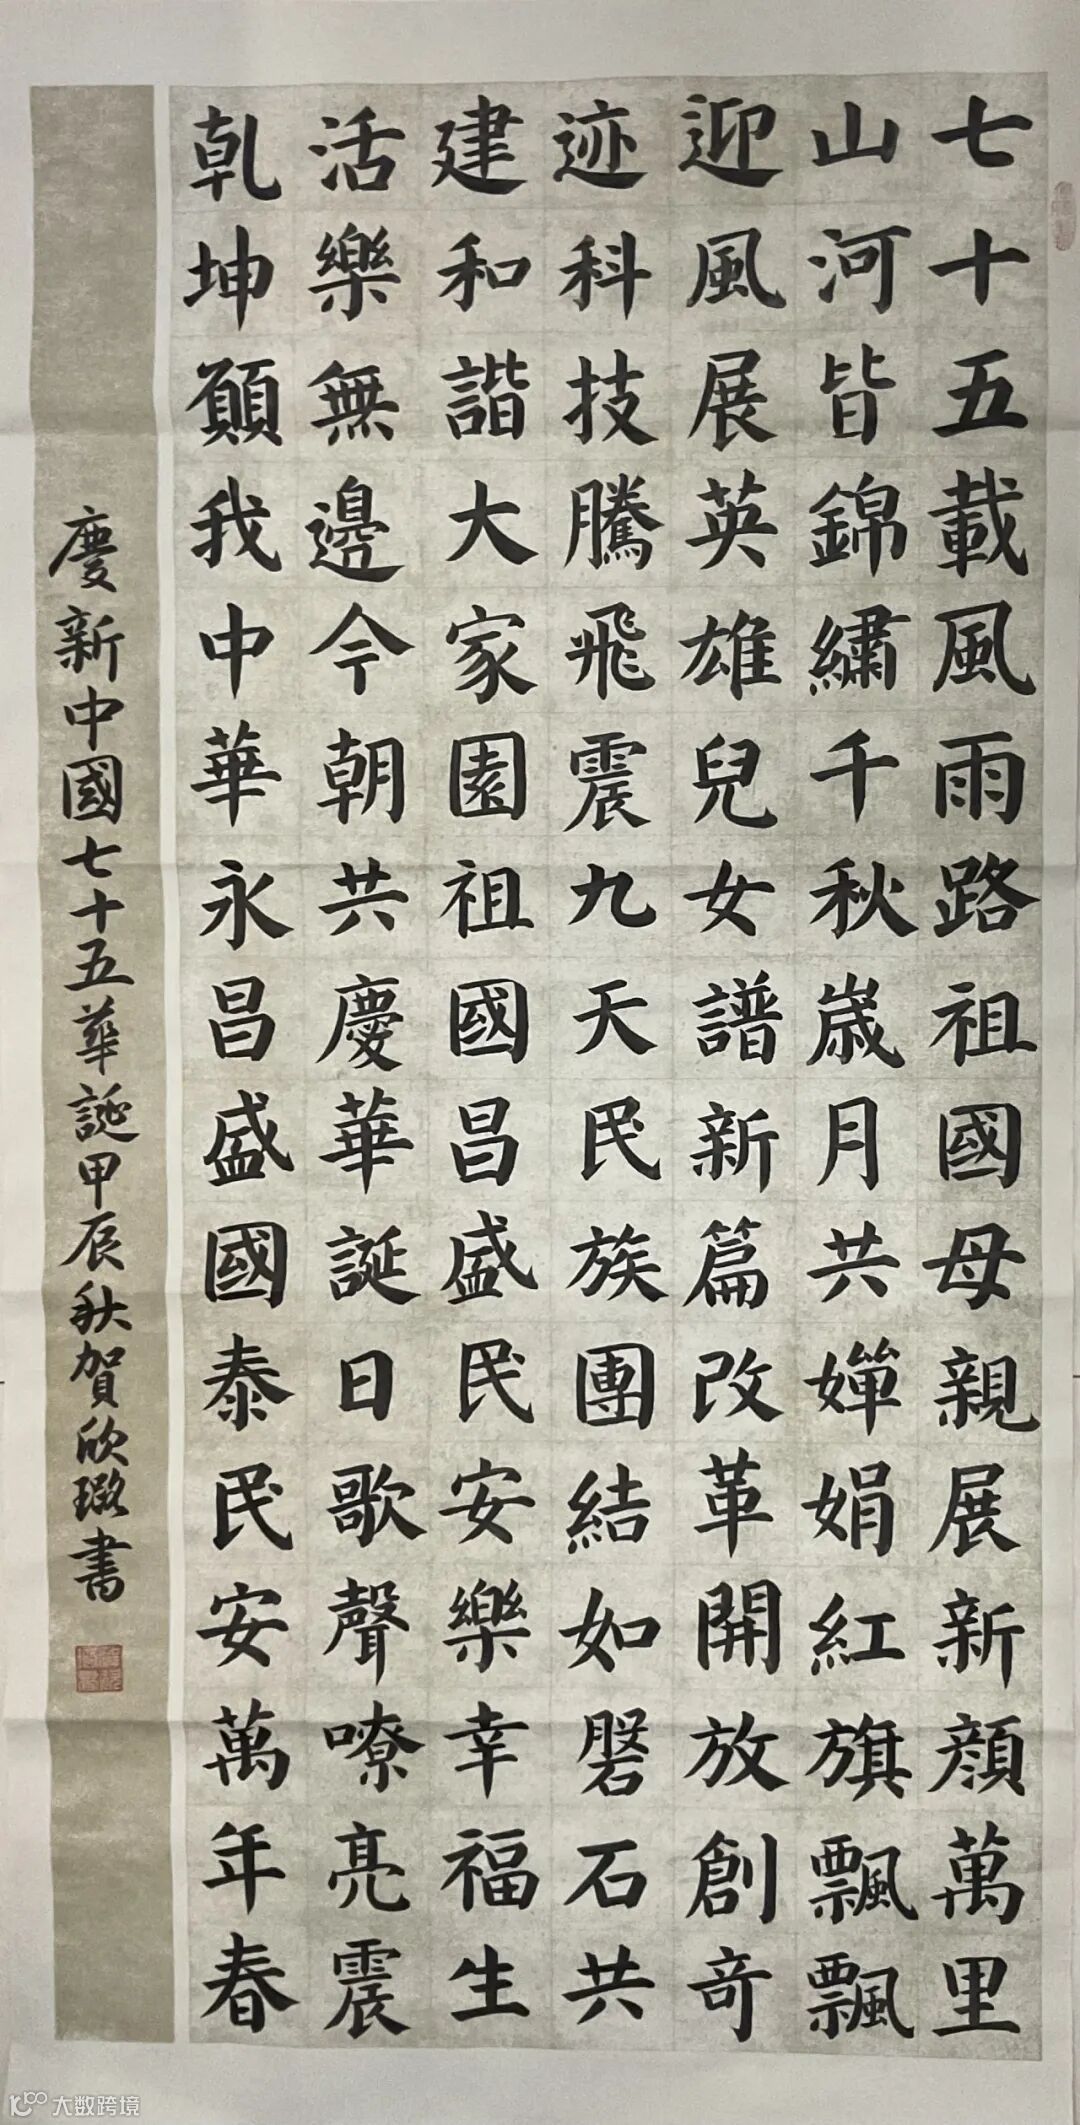 七十五載風雨路祖國母親展新顔萬里
山河皆錦繡千秋歲月共嬋娟紅旗飄飄
迎風展英雄兒女譜新篇改革開放創奇
迹科技騰飛震九天民族團結如磐石共
建和諧大家園祖國昌盛民安樂幸福生
活樂無邊今朝共慶華誕日歌聲嘹亮震
乹坤願我中華永昌盛國泰民安萬年春
慶新中國七十五華誕甲辰秋賀欣璐書
大数跨境